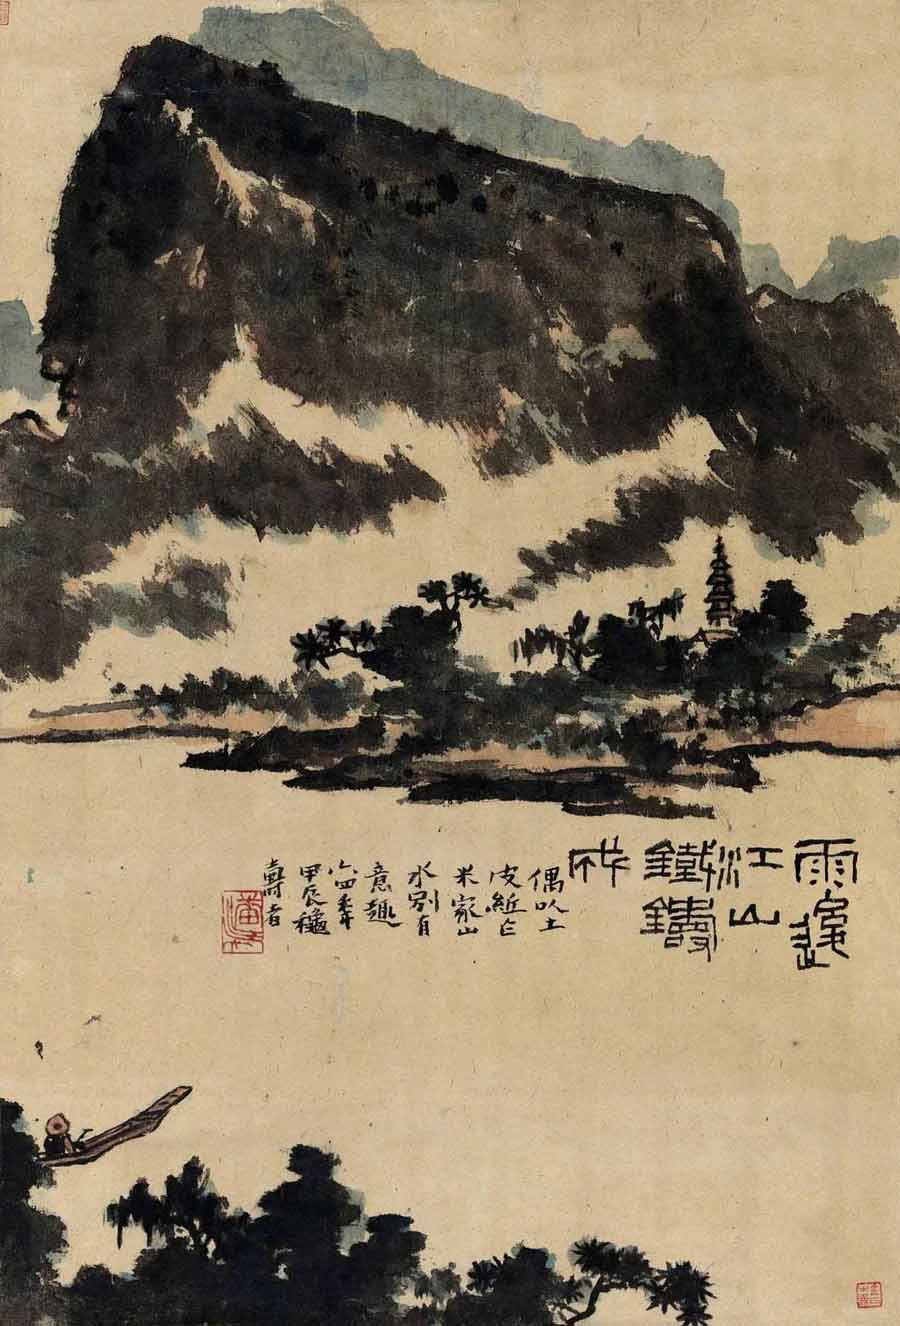 雨後
江山
鐵鑄
成
偶以土
皮紙作
米家山
水別有
意趣
六四年
甲辰穐
壽者